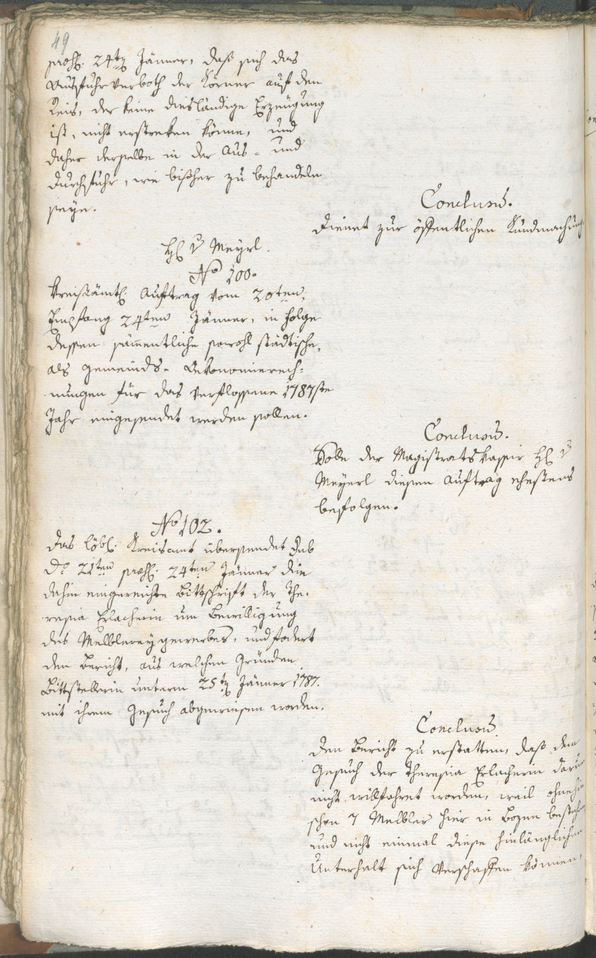 49
præs. 24ten Jänner, daß sich das
Ausfuhrverboth der Körner auf den
Reis, der keine diesländige Erzeugung
ist, nicht erstreken könne, und
daher derselbe in der Aus- und
Durchfuhr, wie bißher zu behandeln
seye.
Conclusum.
Dienet zur öffentlichen Kundmachung
H. v Meyrl.
No 100.
Kreisämtl. Auftrag vom 20ten,
Empfang 24ten Jänner, in Folge
dessen sämentliche sowohl städtische,
als Gemeinds- Oekonomierech-
nungen für das verflossene 1787ste
Jahr eingesendet werden sollen.
Conclusum.
Solle der Magistratskassir H. v
Meyerl diesen Auftrag ehestens
befolgen.
No 102.
Das löbl. Kreisamt übersendet sub
do 21ten præs. 24ten Jänner die
dahin eingereichte Bittschrift der The-
resia Erlacherin um Bewilligung
des Melblereygewerbes, und fodert
den Bericht, aus welchen Gründen
Bittstellerin unterm 25ten Jänner 1787.
mit ihrem Gesuch abgewiesen worden.
Conclusum
Den Bericht zu erstatten, daß dem
Gesuch der Theresia Erlacherin
nicht willfahret worden, weil
schon 7 Melbler hier in Bozen
und nicht einmal diese hinlänglichen
Unterhalt sich verschaffen können.